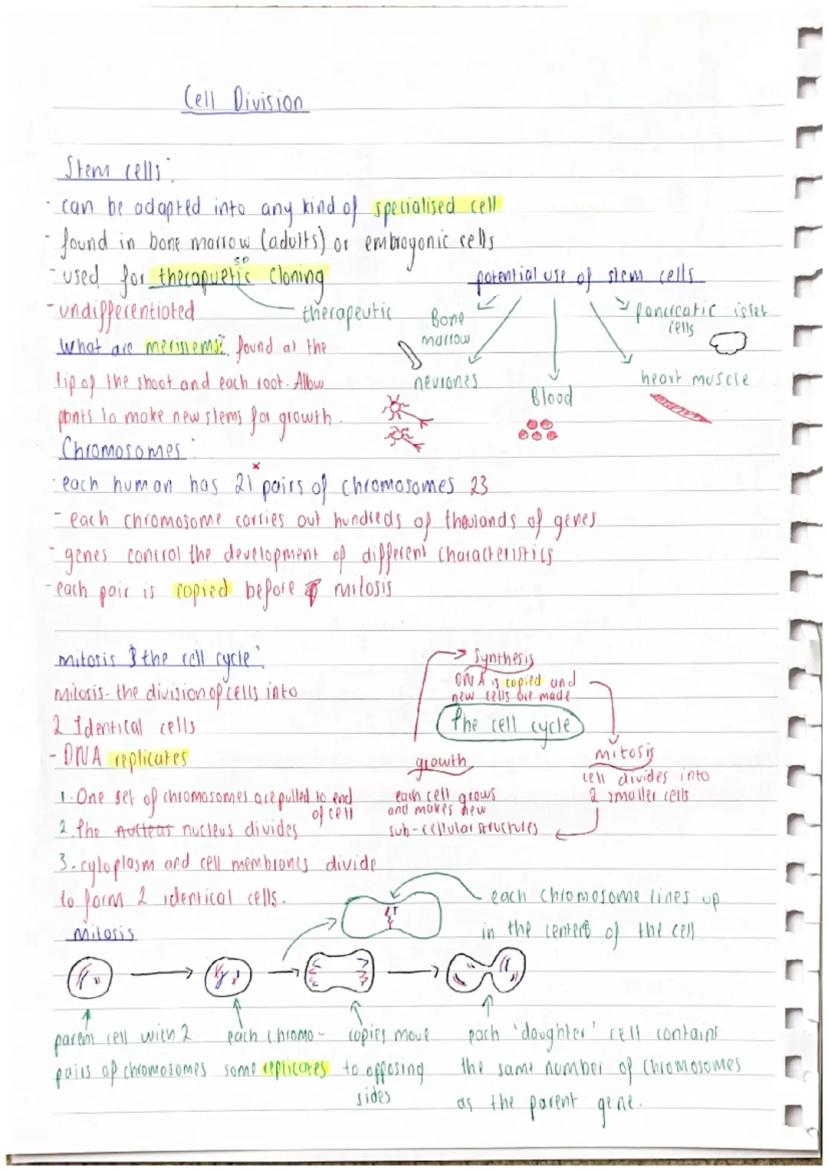 Cell Division
Stem cells:
- can be adapted into any kind of specialised cell
- found in bone marrow (adults) or embryonic cells
- used for therapuetic cloning
- undifferentiated
therapeutic
potential use of stem cells
Bone
marrow
neurones
Blood
heart muscle
pancreatic islet
cells
What are meristems? found at the
tip of the shoot and each root. Allow
plants to make new stems for growth.
Chromosomes:
- each human has 21 x pairs of chromosomes 23
- each chromosome carries out hundreds of thousands of genes
- genes control the development of different characteristics
- each pair is copied before mitosis
mitosis & the cell cycle:
mitosis - the division of cells into
2 Identical cells
- DNA replicates
1. One set of chromosomes are pulled to end
of cell
2. The nuclear nucleus divides
3. cytoplasm and cell membranes divide
to form 2 identical cells.
Synthesis
DNA is copied and
new cells are made
The cell cycle
mitosis
cell divides into
2 smaller cells
growth
each cell grows
and makes new
sub-cellular structures
mitosis
each chromosome lines up
in the center of the cell
parent cell with 2
pairs of chromosomes
each chromo-
some replicates
copies move
to opposing
sides
each 'daughter' cell contains
the same number of chromosomes
as the parent gene.